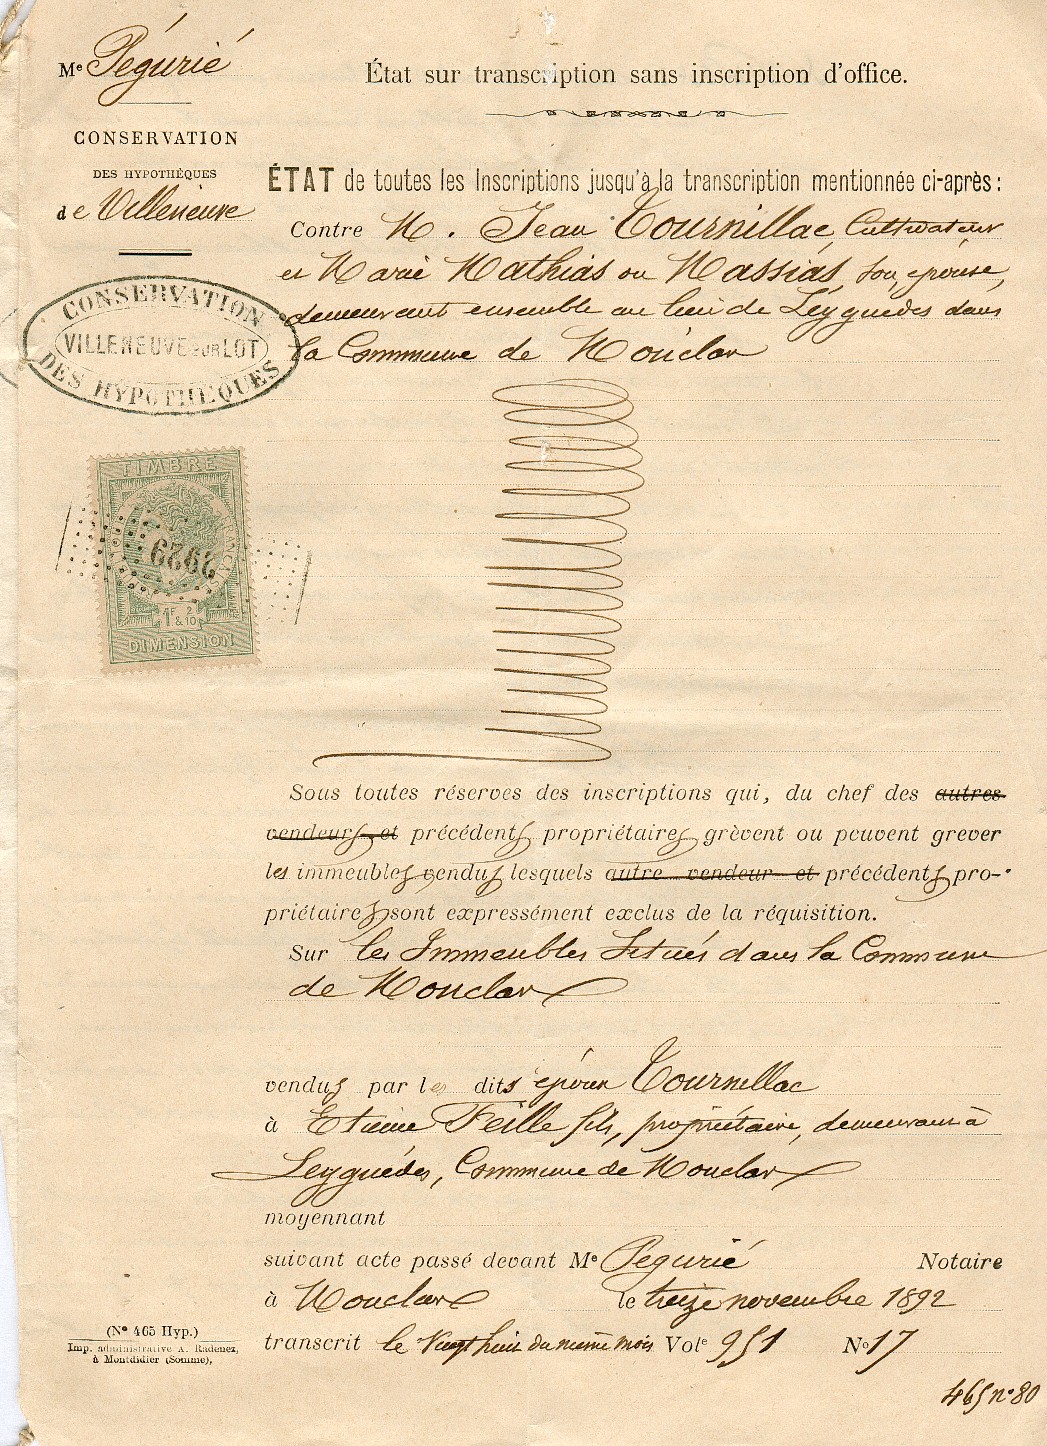 Me Pégurié
CONSERVATION
DES HYPOTHÈQUES
de Villeneuve
CONSERVATION
VILLENEUVE SUR LOT
DES HYPOTHEQUES
TIMBRE
2929
1F & 2/10
DIMENSION
État sur transcription sans inscription d'office.
ÉTAT de toutes les Inscriptions jusqu'à la transcription mentionnée ci-après :
Contre M. Jean Tournillac, Cultivateur
et Marie Mathias ou Massias, son épouse,
demeurant ensemble au lieu de Leyguedes dans
la Commune de Monclar
Sous toutes réserves des inscriptions qui, du chef des autres
vendeurs et précédents propriétaires grèvent ou peuvent grever
les immeubles vendus lesquels autre vendeur et précédents pro-
priétaires sont expressément exclus de la réquisition.
Sur les Immeubles Situés dans la Commune
de Monclar
vendus par les dits époux Tournillac
à Etienne Feille fils, propriétaire, demeurant à
Leyguédes, Commune de Monclar
moyennant
suivant acte passé devant Me Pegurié Notaire
à Monclar le treize novembre 1892
transcrit le Vingt huit du même mois Vole 951 No 17
(No 465 Hyp.)
Imp. administrative A. Radenez,
à Montdidier (Somme),
465 no 80